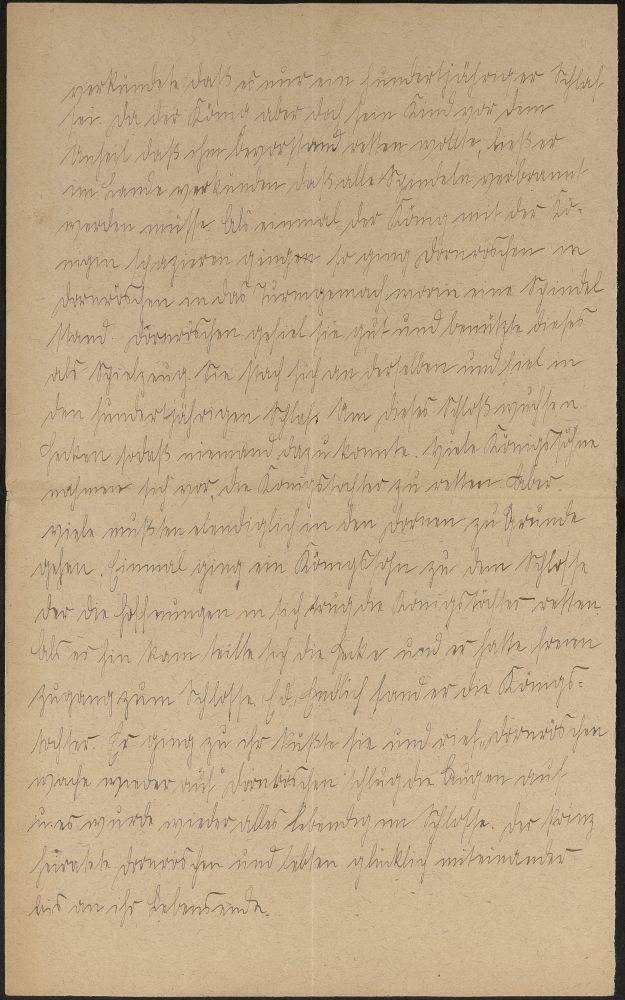 verkündete daß es nur ein hundertjähriger Schlaf
sei. Da der König aber doch sein Kind vor dem
Unheil daß ihm bevorstand retten wollte, ließ er
im Lande verkünden daß alle Spindeln verbrannt
werden müsse. Als einmal der König mit der Kö-
nigin spazieren gingen so ging Dornröschen in
Dornröschen in das Turmgemach worin eine Spindel
stand. Dornröschen gefiel sie gut und benützte dieses
als Spielzeug. Sie stach sich an derselben und fiel in
den hundertjährigen Schlaf. Um dieses Schloß wuchsen
Hecken sodaß niemand dazu konnte. Viele Königssöhne
nahmen sich vor, die Königstochter zu retten. Aber
viele mußten elendiglich in den Dornen zu Grunde
gehen. Einmal ging ein Königssohn zu dem Schlosse
der die Hoffnungen in sich trug die Königstochter retten.
Als er hin kam teilte sich die Hecke und er hatte freien
Zugang zum Schlosse. Endlich fand er die Königs-
tochter. Er ging zu ihr küßte sie und rief, „Dornröschen
wache wieder auf" Dornröschen schlug die Augen auf
u. es wurde wieder alles lebendig im Schlosse. Der Prinz
heiratete Dornröschen und lebten glücklich miteinander
bis an ihr Lebensende.